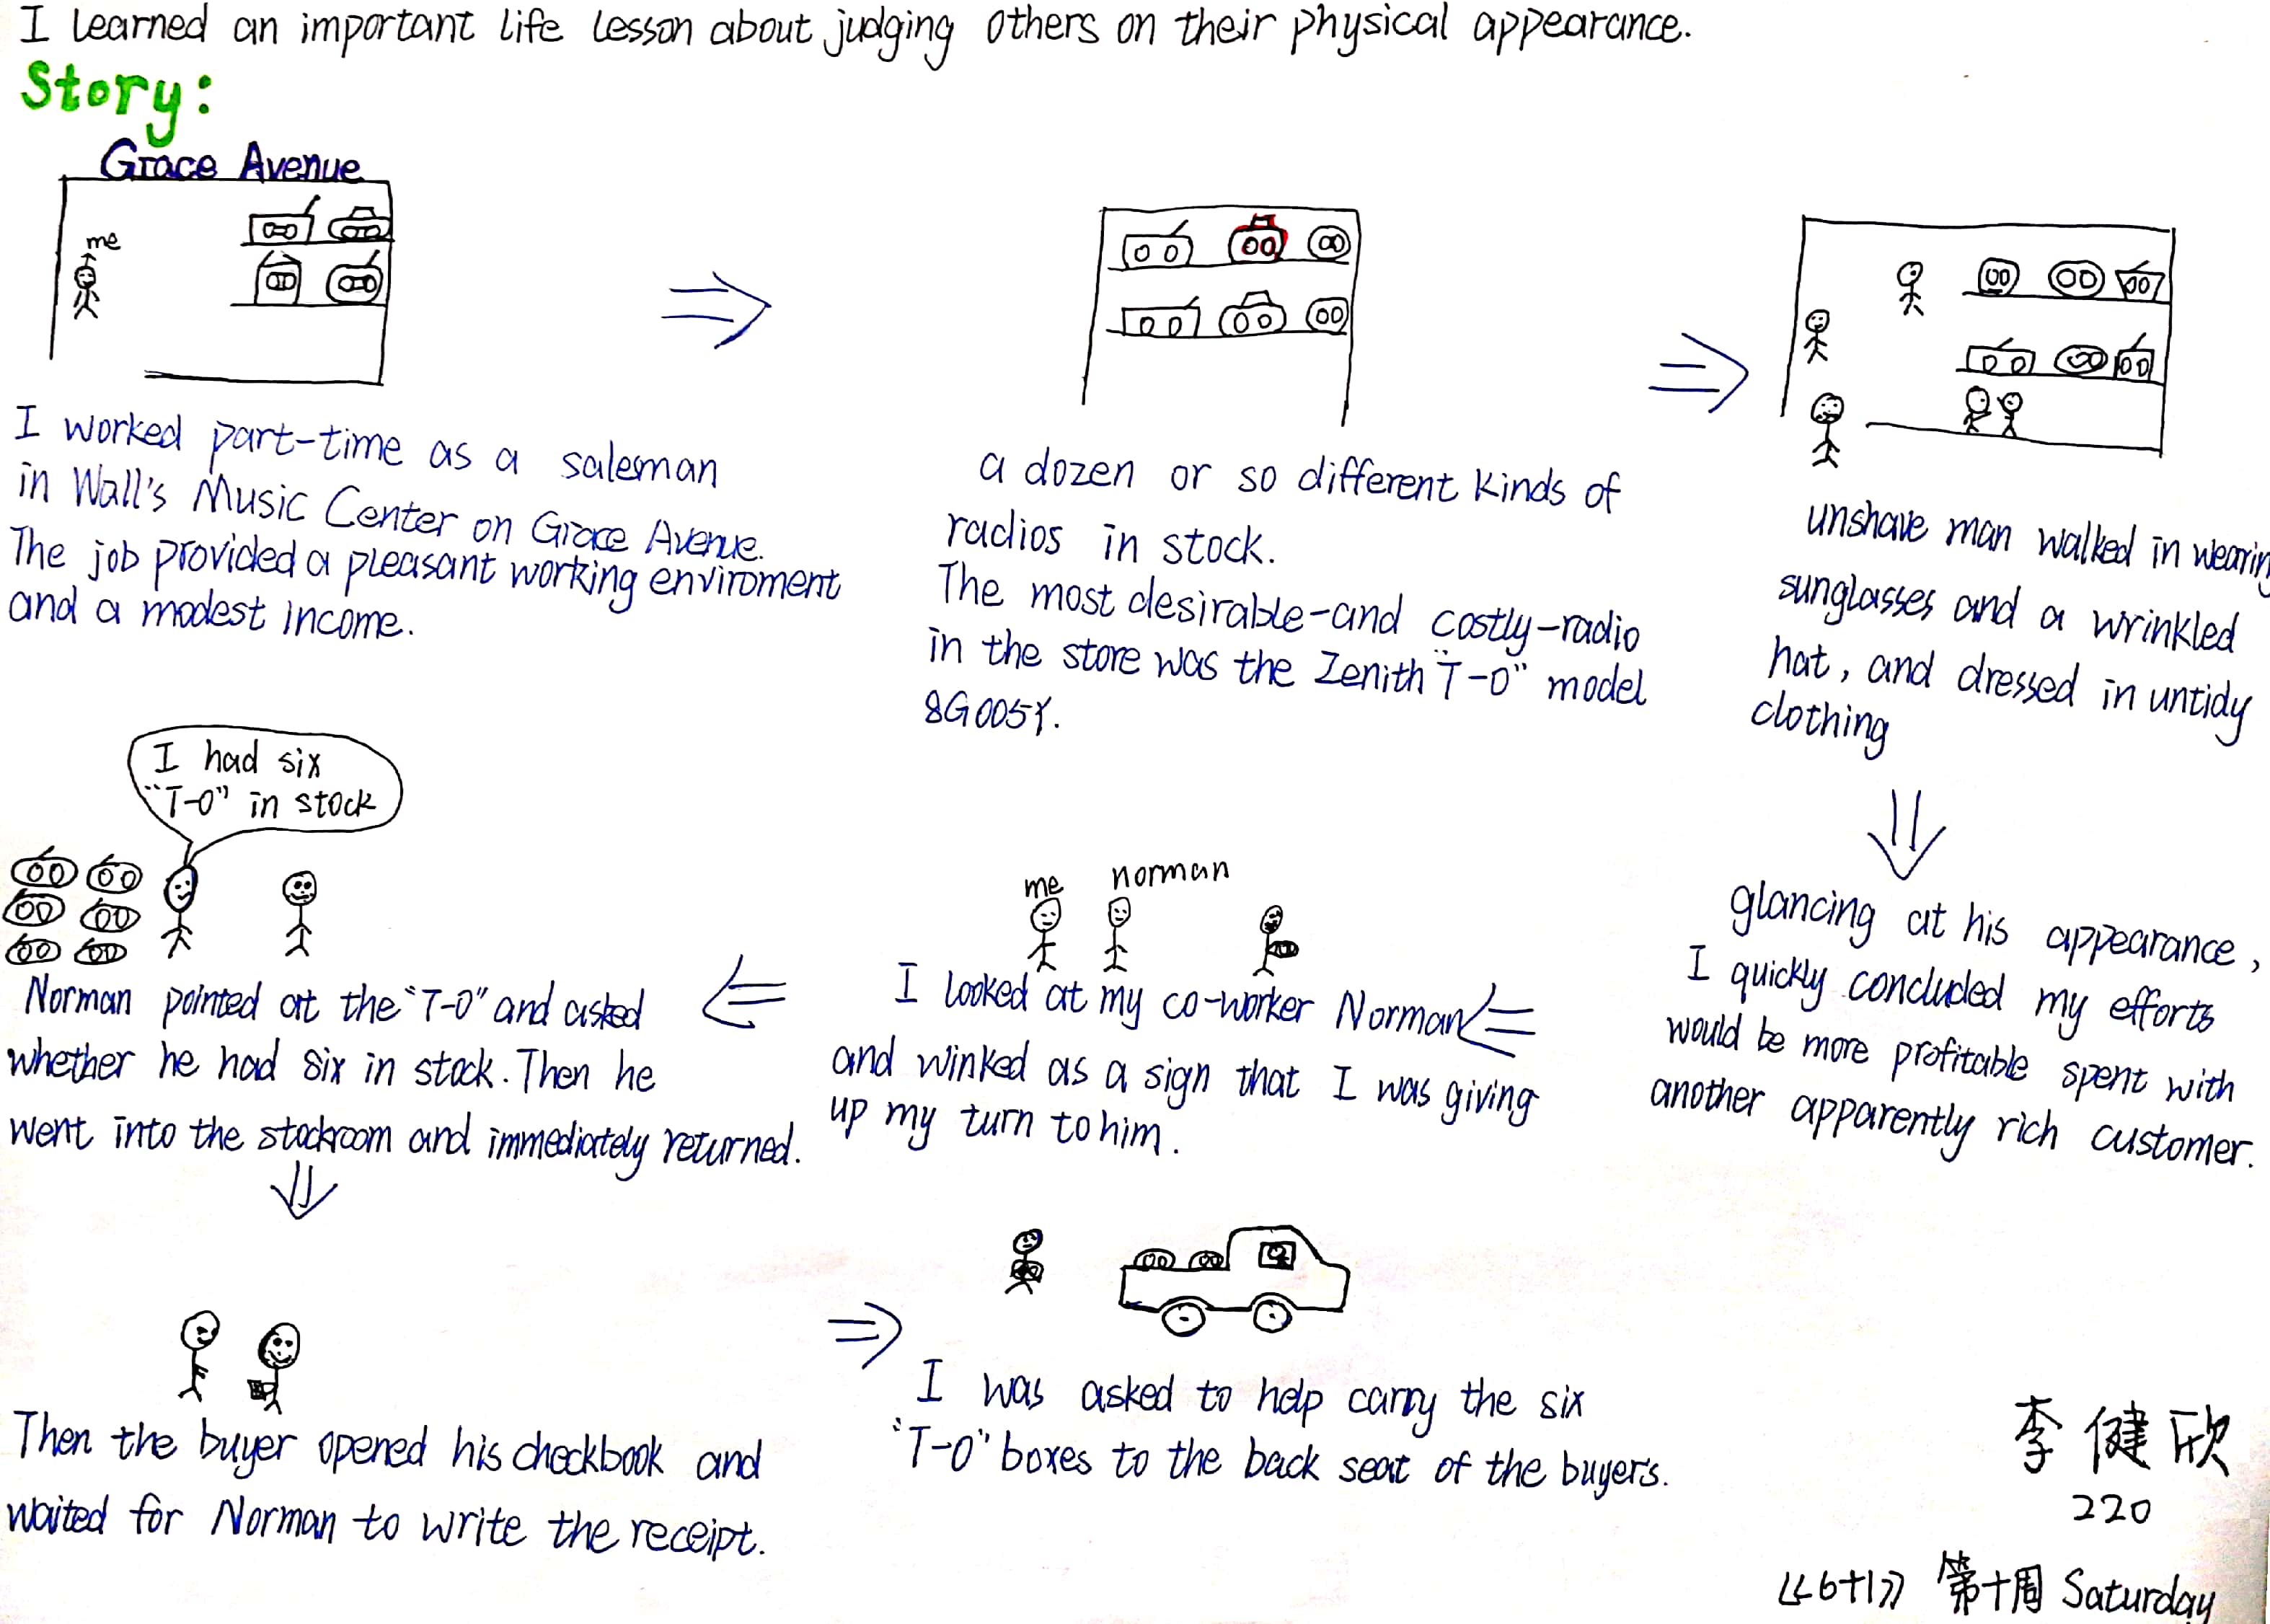 I learned an important life lesson about judging others on their physical appearance.
Story:
Grace Avenue
me
I worked part-time as a salesman
in Wall's Music Center on Grace Avenue.
The job provided a pleasant working enviroment
and a modest income.
a dozen or so different kinds of
radios in stock.
The most desirable-and costly-radio
in the store was the Zenith "T-O" model
8G005Y.
unshave man walked in wearin
sunglasses and a wrinkled
hat, and dressed in untidy
clothing
glancing at his appearance,
I quickly concluded my efforts
would be more profitable spent with
another apparently rich customer.
me norman
I looked at my co-worker Norman
and winked as a sign that I was giving
up my turn to him.
I had six
"T-O" in stock
Norman pointed at the "T-O" and asked
whether he had six in stock. Then he
went into the stockroom and immediately returned.
Then the buyer opened his checkbook and
waited for Norman to write the receipt.
I was asked to help carry the six
"T-O" boxes to the back seat of the buyer's.
李健欣
220
《6+1》 第十周 Saturday